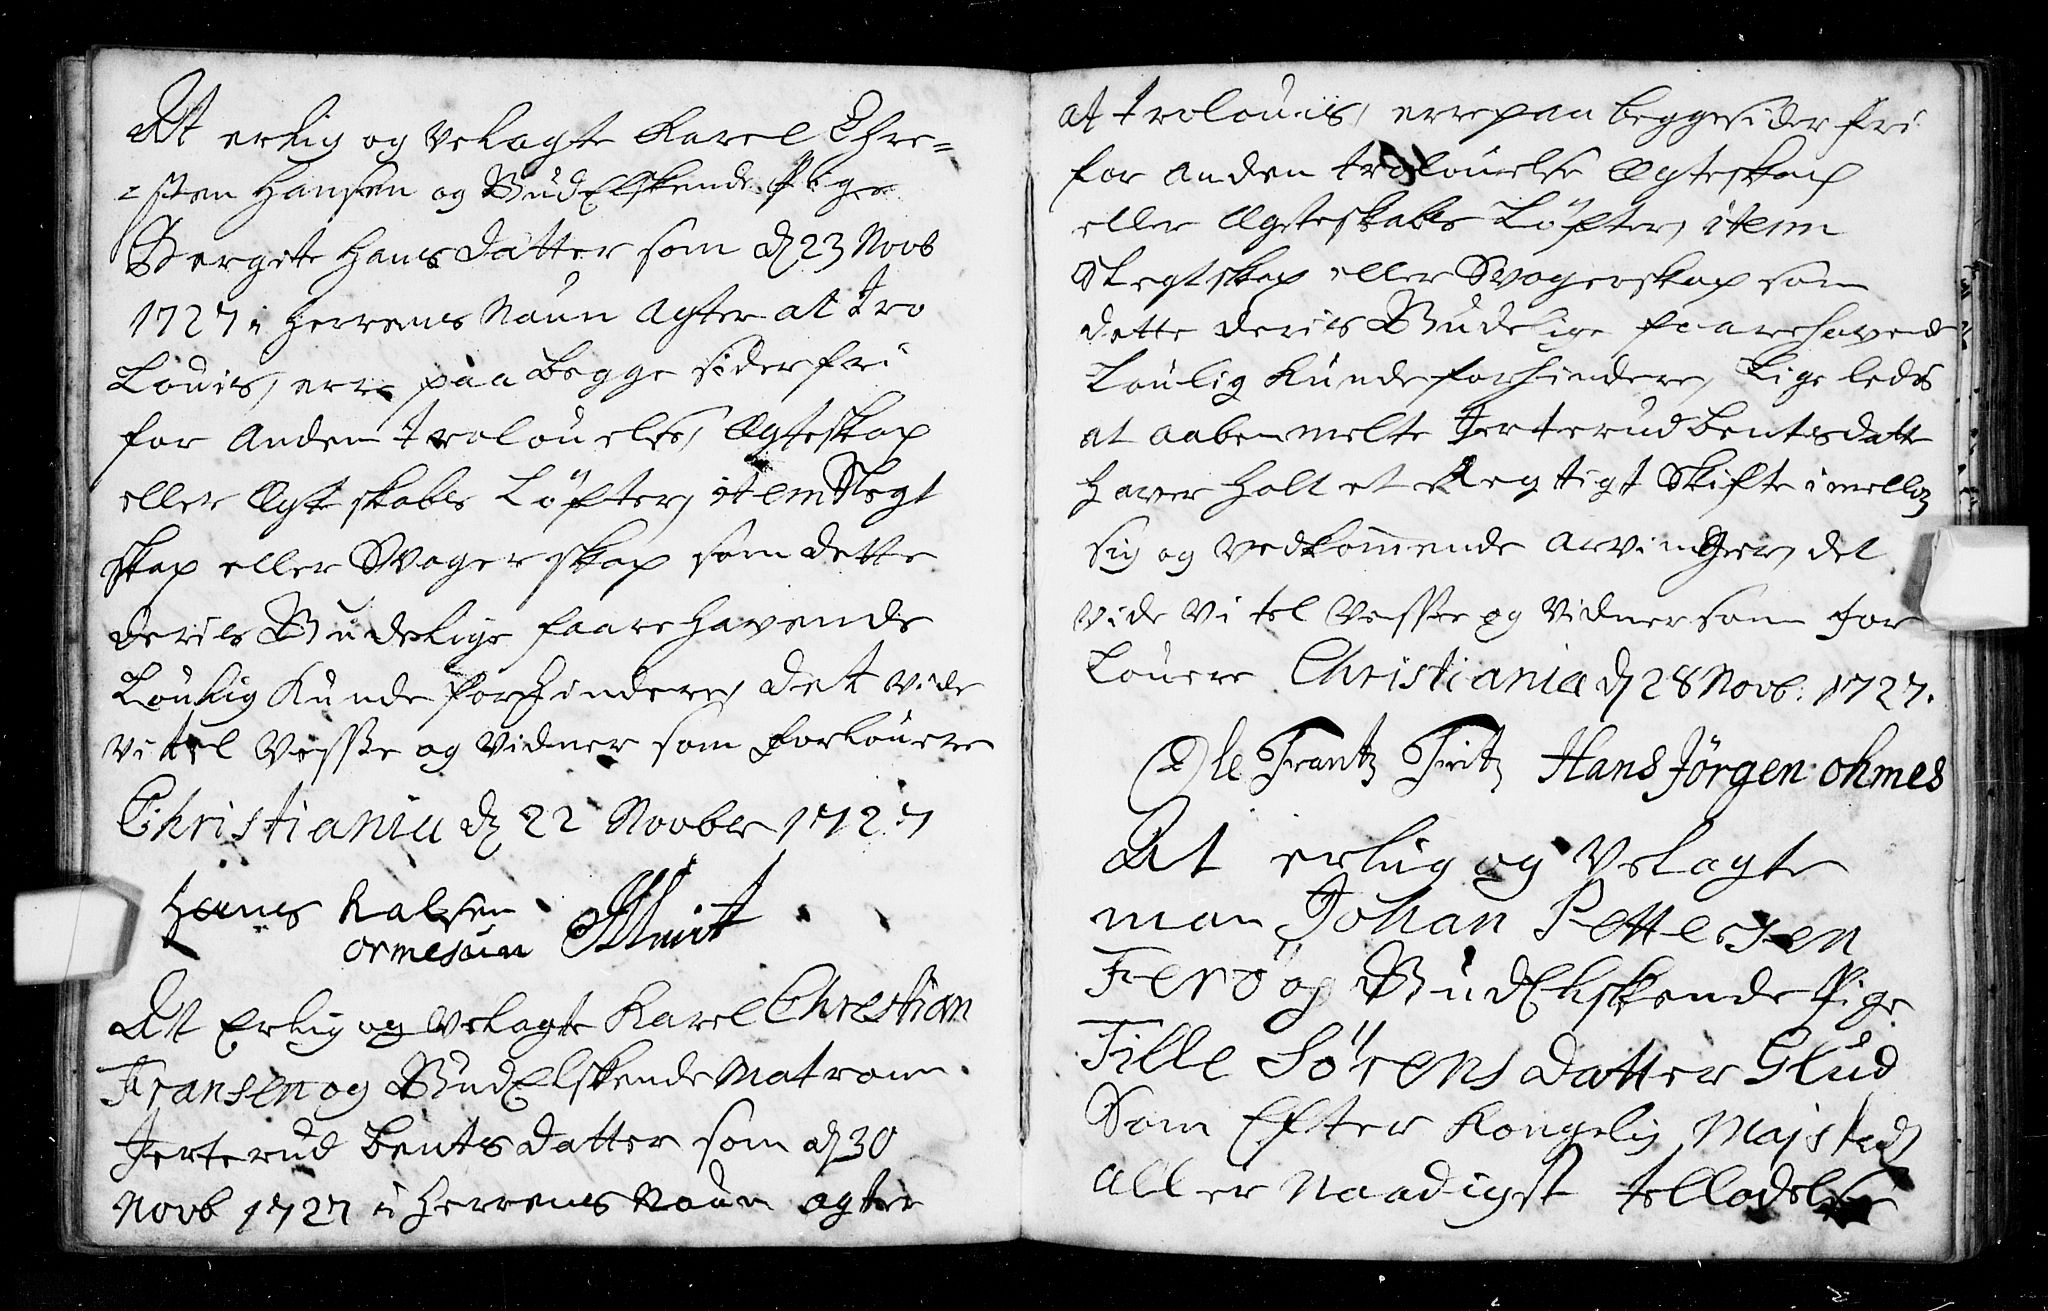 At erlig og velagte Karel Chre=
=sten Hansen og GudElskende Pige
Bergite Hans datter som d 23 Novb
1727 i Herrens Naun agter at tro
Louis, erre paa begge sider fri
for anden trolouelse, Ægteskap
eller Ægteskabs Løfter, item Slegt
skap eller Svagerskap som dette
deris Gudelige faarehavende
Loulig Kunde forhindere, det vide
vi tel visse og vidner som forlouere
Christiania d 22 Novbr 1727
Hans Kalsen
ormesun
At Erlig og velagte Karel Chrestian
Fransen og GudElskende Matrone
Jerterud bents datter som d 30
Novb 1727 i Herrens Naun agter
at trolouis, erre paa begge sider fri
for anden trolouelse Ægteskap
eller Ægteskabs Løfter, item
Slegtskap eller Svogerskap som
dette deris Gudelige faarehavende
Loulig Kunde forhindere, Lige leds
at aabenmelte Jerterud bentsdatter
haver holt et Regtigt Skifte imellem
sig og vedkommende arvinger, det
vide vi tel visse og vidner som for
Louere Christiania d 28 Novb: 1727.
Ole Frantz Fritz Hans Jörgen ohmes
At erlig og velagte
man Johan Pettersen
Ferö og GudElskende Pige
Tille Sörens datter Glud
Som Efter Kongelig Majsteds
aller Naadigst telladelse